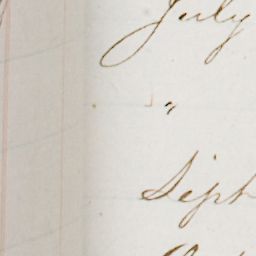 July
"
Sept